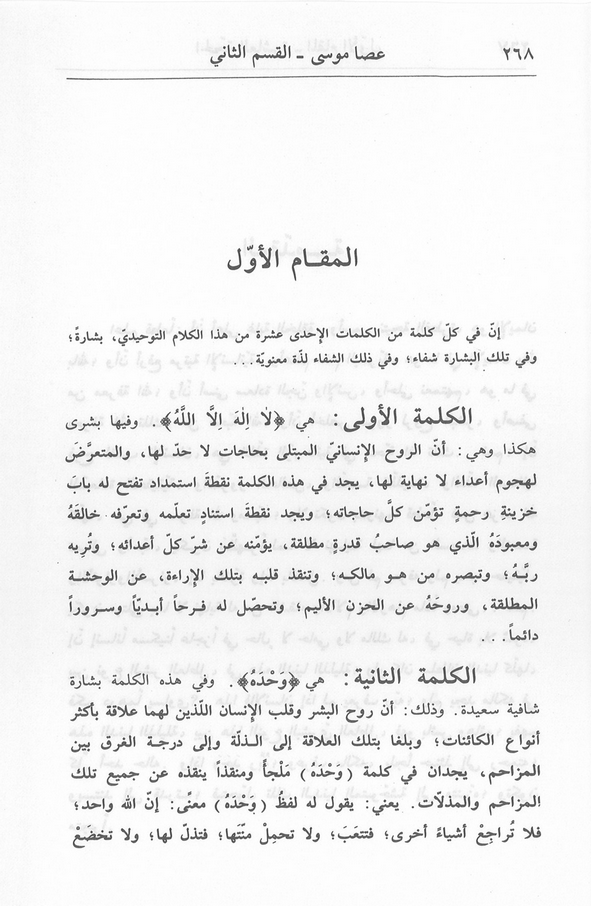 ٢٦٨
عصا موسى ـ القسم الثاني
المقـام الأوّل
إنّ في كلّ كلمة من الكلمات الإحدى عشرة من هذا الكلام التوحيديّ، بشارة؛
وفي تلك البشارة شفاء؛ وفي ذلك الشفاء لذّة معنويّة...
الكلمة الأولى: هي ﴿لَا إِلَهَ اِلاَّ اللَّهُ﴾. وفيها بشرى
هكذا وهي: أنّ الروح الإنسانيّ المبتلى بحاجات لا حدّ لها، والمتعرَّضَ
لهجوم أعداء لا نهاية لها، يجد في هذه الكلمة نقطةَ استمداد تفتح له بابَ
خزينةِ رحمةٍ تؤمّن كلَّ حاجاته؛ ويجد نقطةَ استنادٍ تعلّمه وتعرّفه خالقَهُ
ومعبودَهُ الّذي هو صاحبُ قدرةٍ مطلقة، يؤمّنه عن شرّ كلّ أعدائه؛ وتُريه
ربَّـهُ؛ وتبصره من هـو مالكـه؛ وتنقذ قلبـه بتلك الإراءة، عن الوحشـة
المطلقة، وروحَهُ عن الحزن الأليم؛ وتحصّل له فرحـاً أبديّـاً وسـروراً
دائمـاً...
الكلمة الثانية: هي ﴿وَحْدَهُ﴾. وفي هذه الكلمة بشارة
شافية سعيدة. وذلك: أنّ روح البشر وقلب الإنسان اللّذين لهما علاقة بأكثر
أنواع الكائنات؛ وبلغا بتلك العلاقة إلى الـذلّة وإلى درجـة الغرق بين
المزاحم، يجدان في كلمة (وَحْدَهُ) مَلْجأً ومنقذاً ينقذه عن جميع تلك
المزاحم والمذلّات. يعني: يقول له لفظُ (وَحْدَهُ) معنًى: إنّ الله واحد؛
فلا تُراجِعْ أشياءً أخرى؛ فتتعَبَ؛ ولا تحمِلْ منّتَها؛ فتذلّ لها؛ ولا تخضَعْ